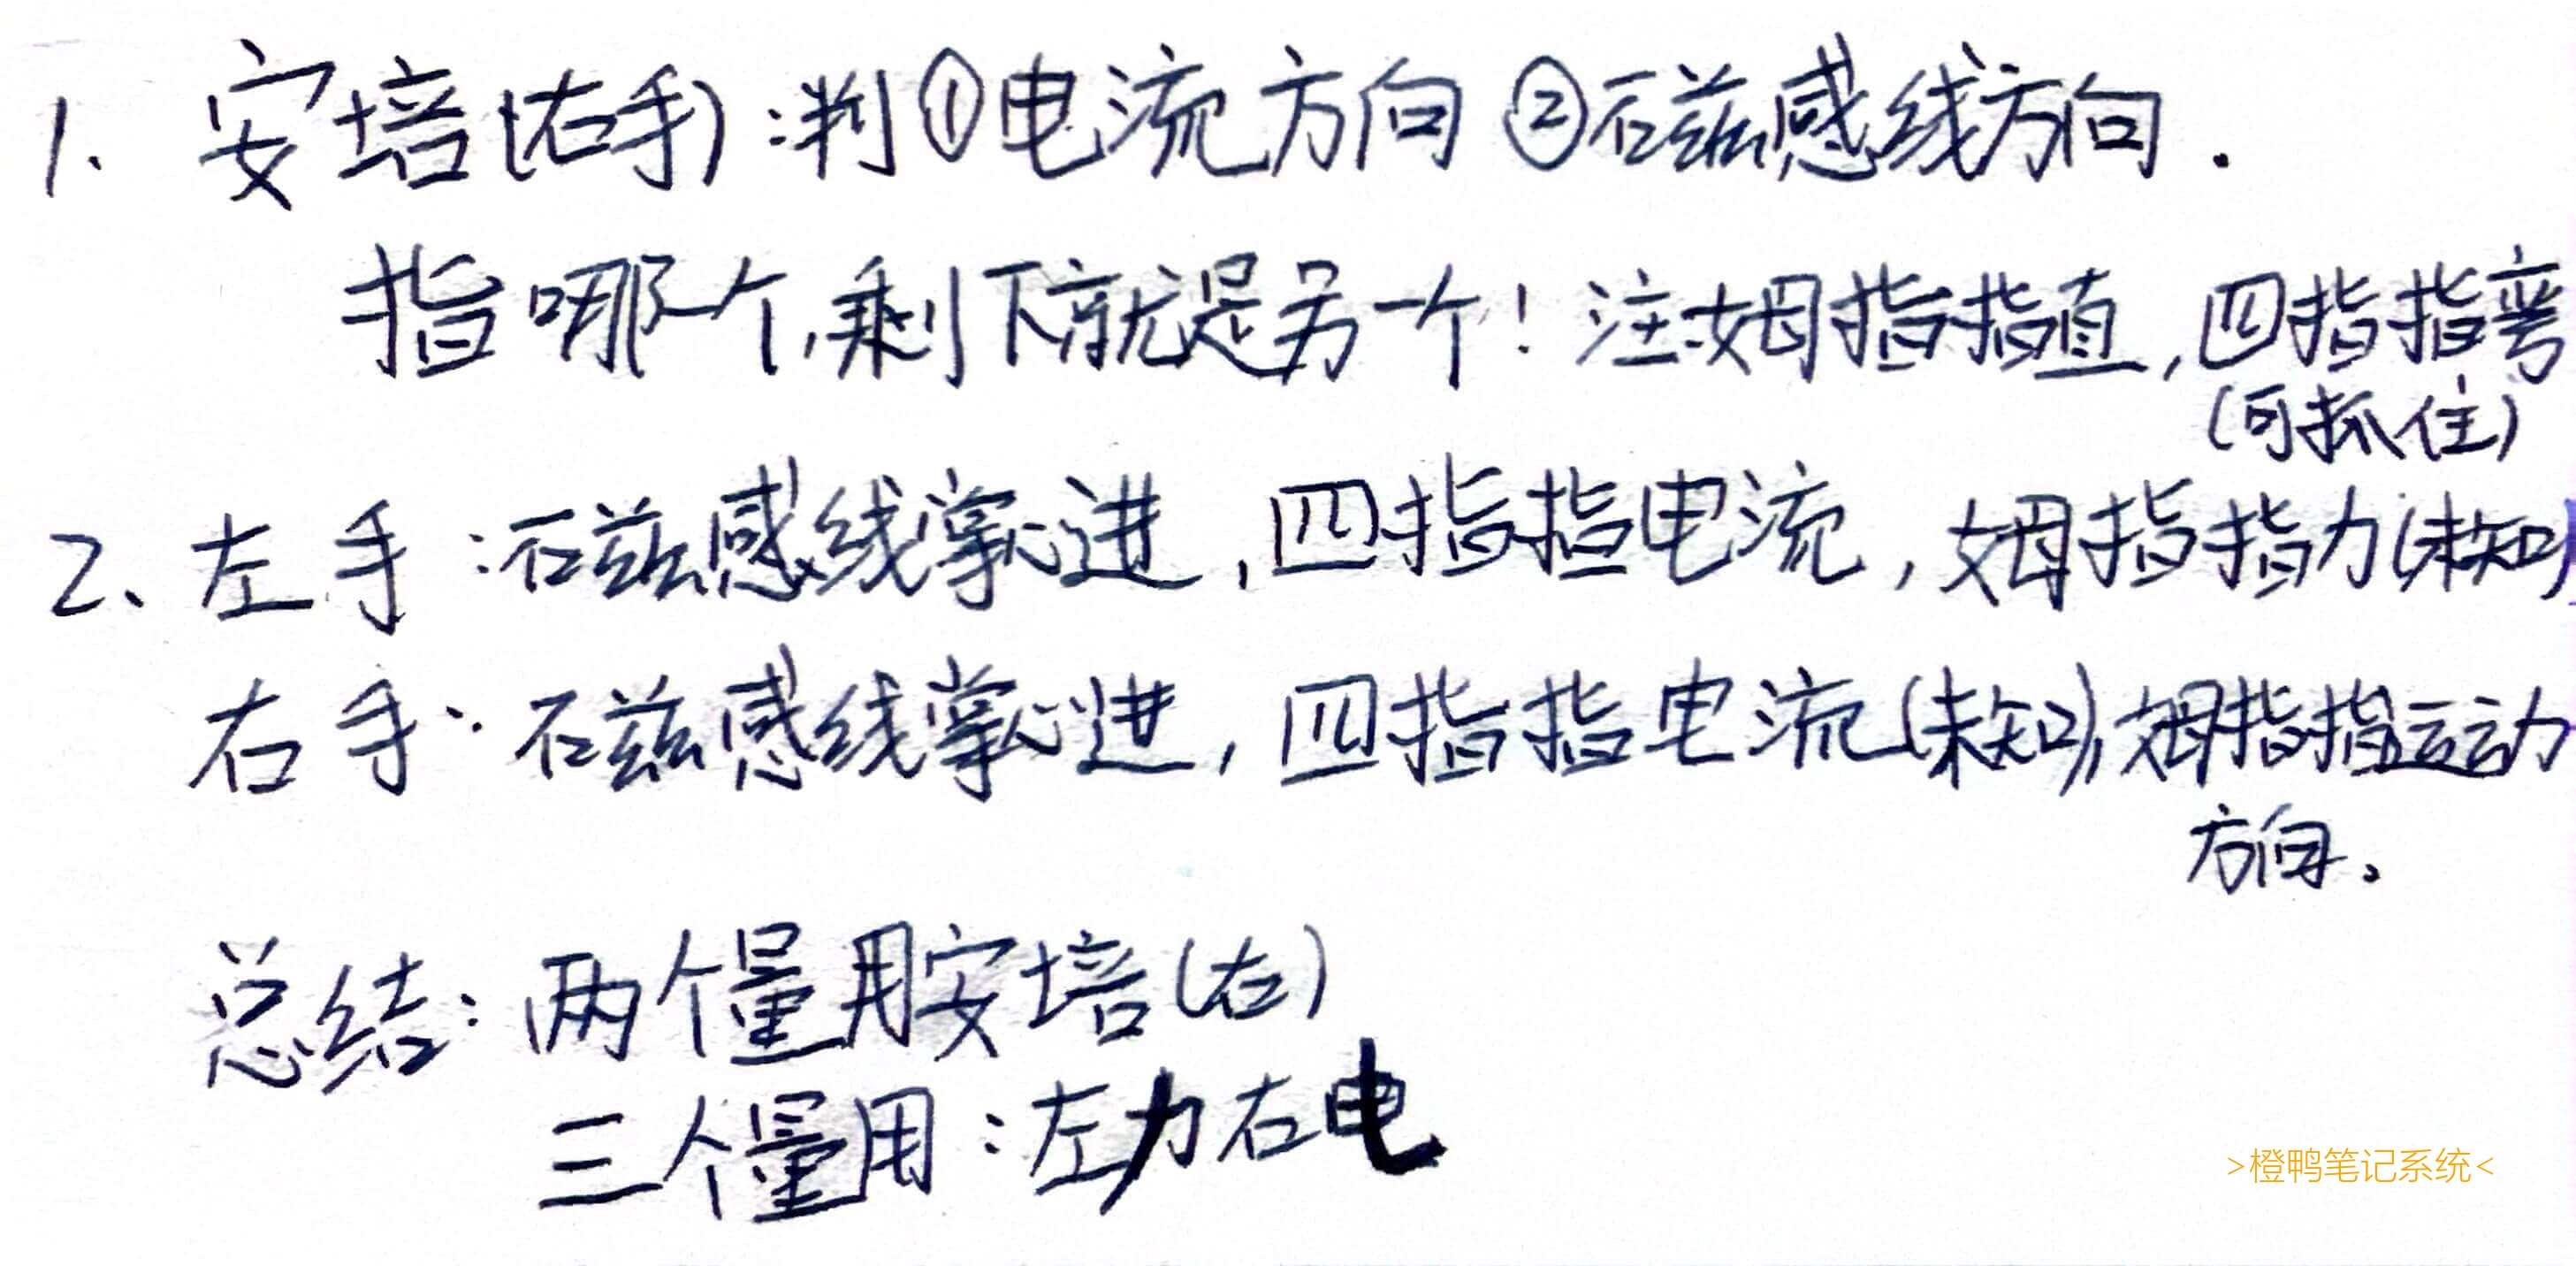 1、安培(右手):判①电流方向 ②磁感线方向.
指哪个,剩下就是另一个!注:姆指指直,四指指弯
(可抓住)
2、左手:磁感线掌心进,四指指电流,姆指指力(未知)
右手:磁感线掌心进,四指指电流(未知),姆指指运动
方向。
总结:两个量用安培(右)
三个量用:左力右电
>橙鸭笔记系统<